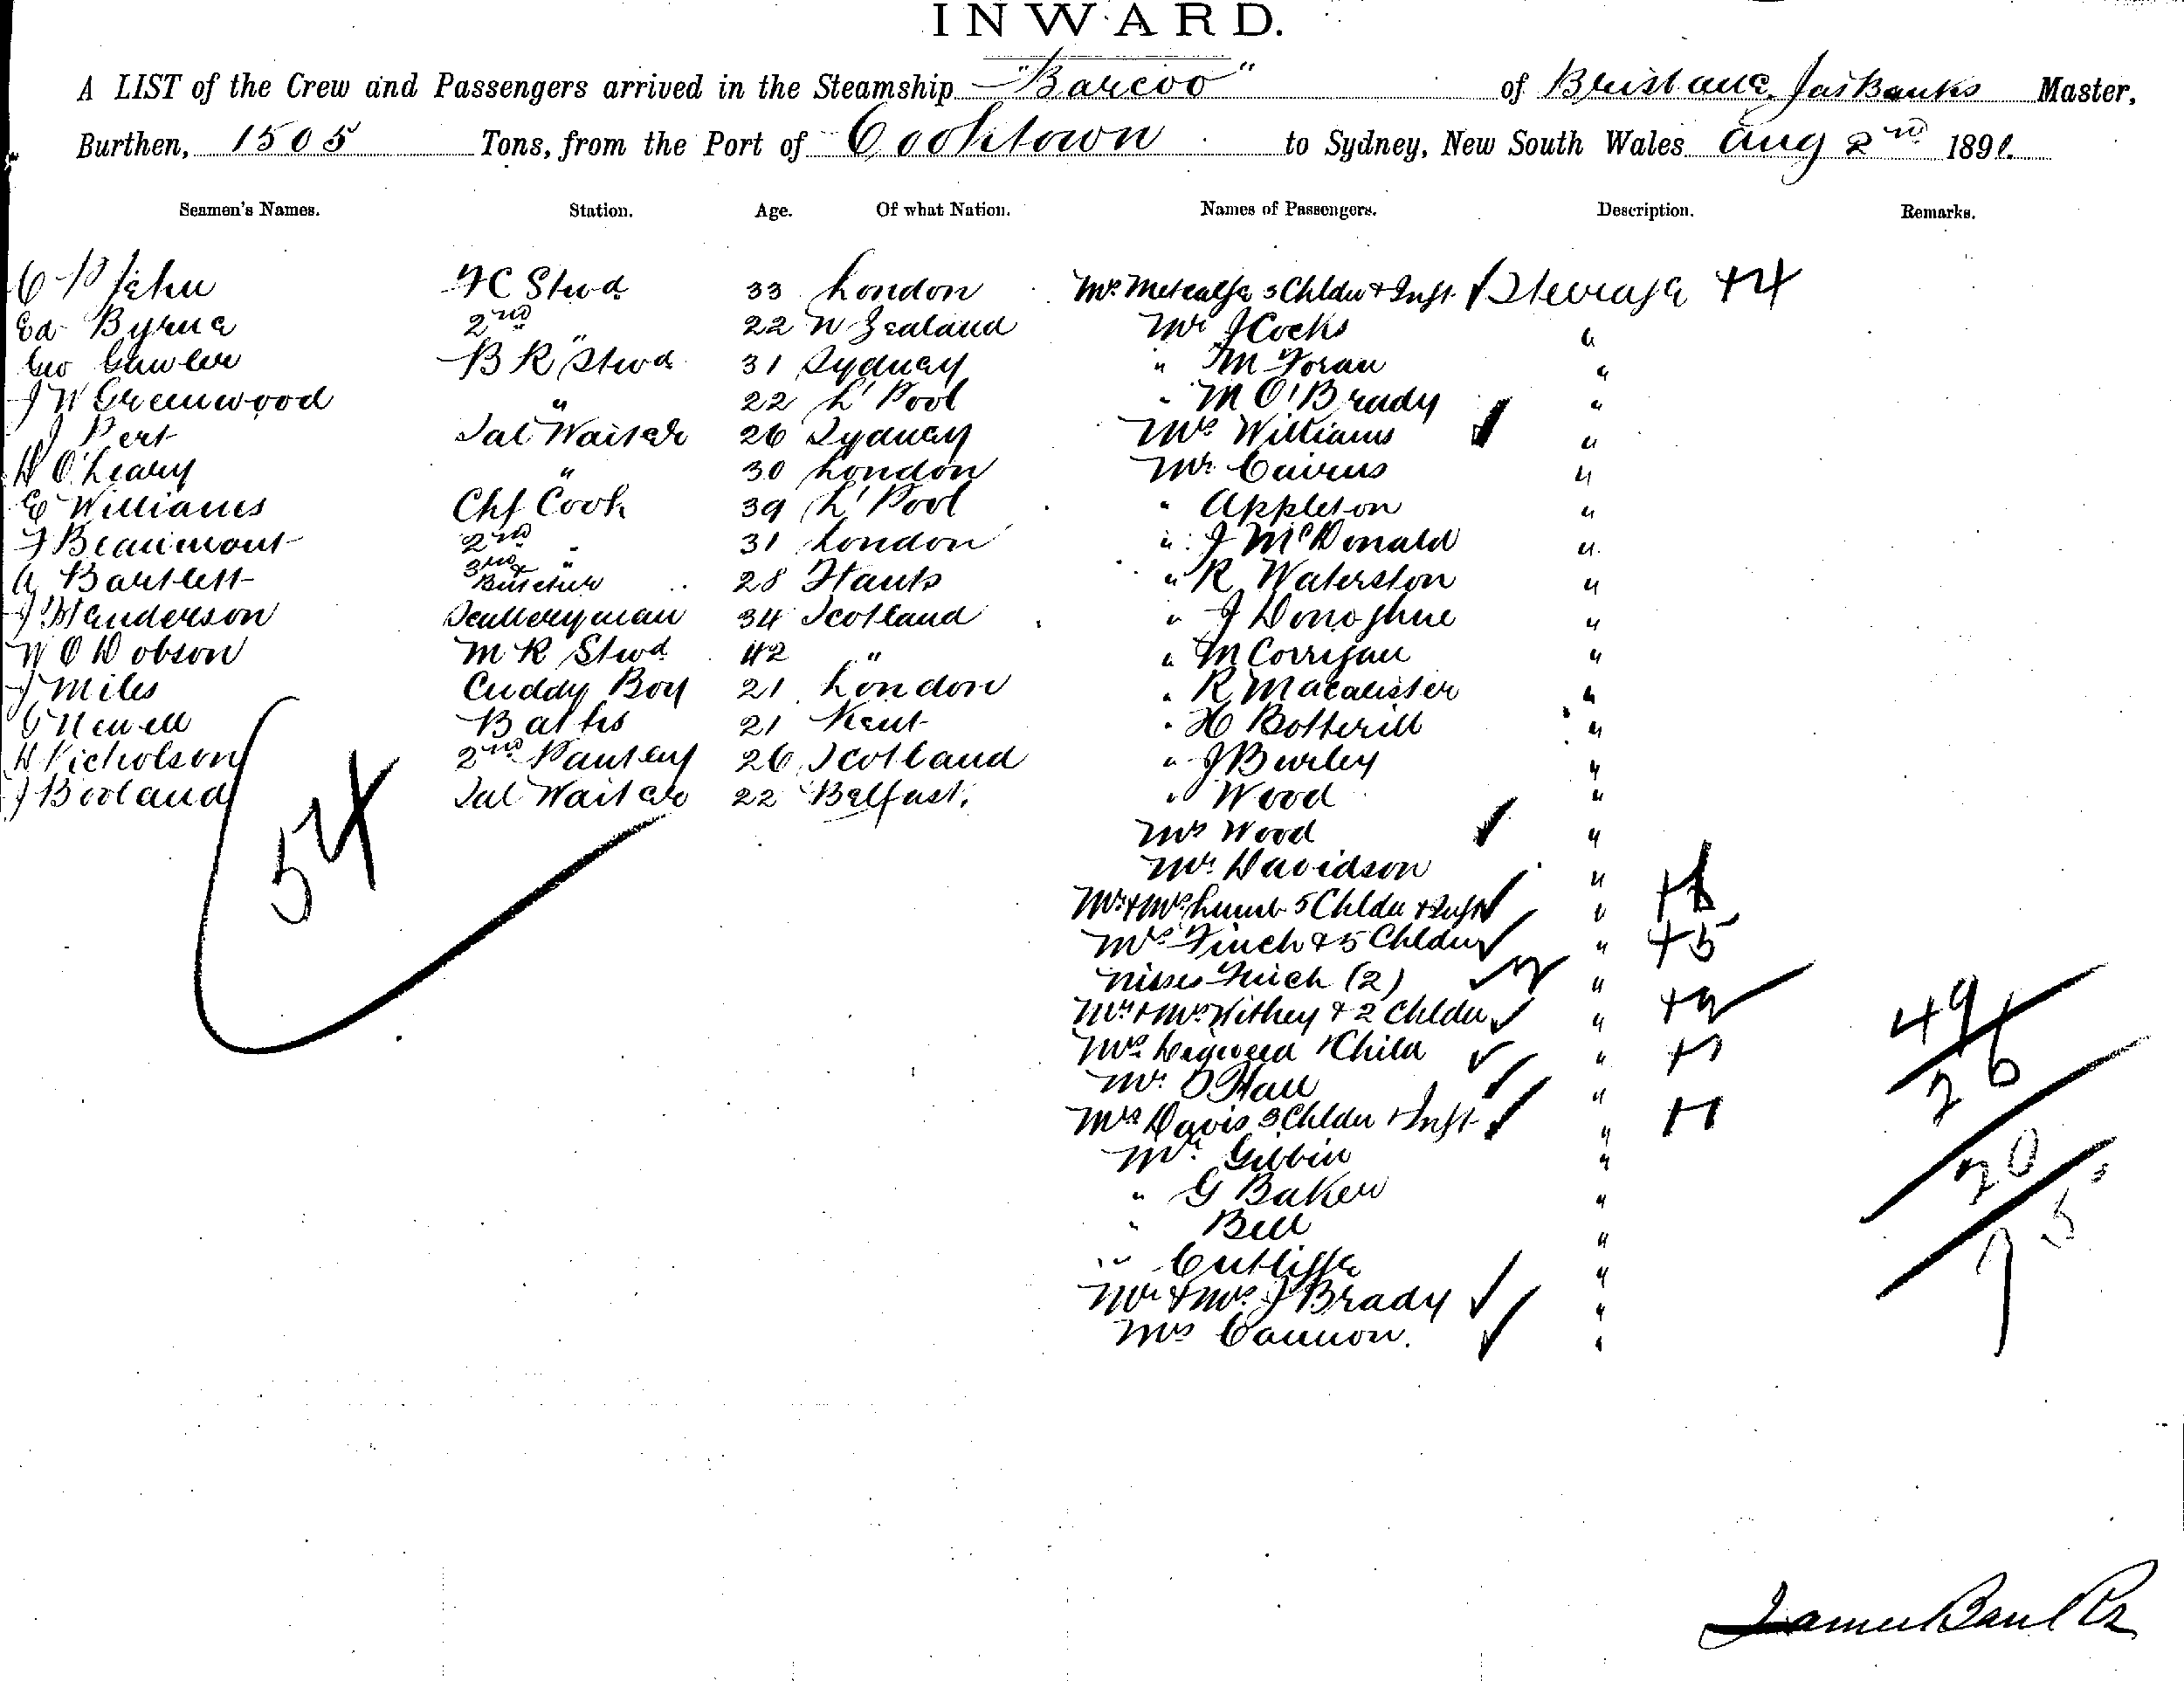 INWARD.
A LIST of the Crew and Passengers arrived in the Steamship "Barcoo" of Brisbane, Jas Banks Master,
Burthen, 1505 Tons, from the Port of Cooktown to Sydney, New South Wales Aug 2nd 1891.
Seamen's Names. Station. Age. Of what Nation. Names of Passengers. Description. Remarks.
C P Jehu FC Stwd 33 London Mrs Metcalfe 3 Chldn & Inft Steerage +4
Ed Byrne 2nd " 22 N Zealand Mr J Cocks "
Geo Gawler B R Stwd 31 Sydney " M Foran "
J W Greenwood " 22 L'Pool " M O'Brady "
J Pert Sal Waiter 26 Sydney Mrs Williams "
D O'Leary " 30 London Mr Cairns "
E Williams Chf Cook 39 L'Pool " Appleton "
J Beaumont 2nd " 31 London " J McDonald "
A Bartlett 3rd " & Butcher 28 Hants " R Waterston "
J Henderson Sculleryman 34 Scotland " J Donoghue "
W O Dobson M R Stwd 42 " " M Corrigan "
J Miles Cuddy Boy 21 London " R Macalister "
G Newell Baths 21 Kent " H Botterill "
D Nicholson 2nd Pantry 26 Scotland " J Burley "
J Booland Sal Waiter 22 Belfast. " Wood "
54
Mrs Wood "
Mr Davidson "
Mr & Mrs Lumb 5 Chldn & Inft "
Mrs Finch & 5 Chldn " +5
Misses Finch (2) "
Mr & Mrs Withey & 2 Chldn " +2
Mrs 1 Child "
Mr D Hall "
Mrs Davis 3 Chldn & Inft "
Mr Gibbin "
" G Baker "
" Bell "
" Cutliffe "
Mr & Mrs J Brady "
Mrs Cannon. "
49
26
20
75
James Banks